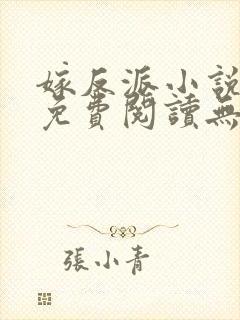 嫁反派小說
免費閱讀無
張小青